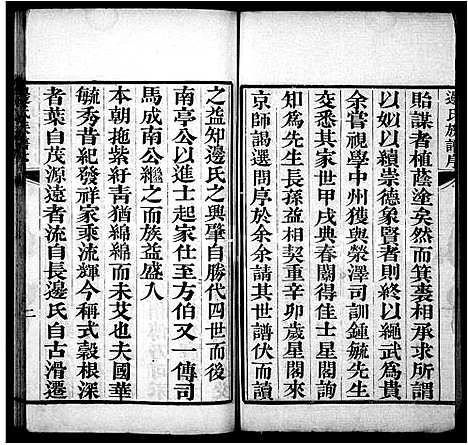 邊氏族譜序
貽謀者植蔭塗矣然而箕裘相承求所謂
以似以續崇德象賢者則終以繩武為貴
余嘗視學中州獲與滎澤司訓鍾毓先生
交悉其家世甲戌典春闈得佳士星閣詢
知為先生長孫益相契重辛卯歲星閣來
京師謁選問序於余余請其世譜伏而讀
之益知邊氏之興肇自勝代四世而後
南亭公以進士起家仕至方伯又一傳司
馬成南公繼之而族益盛入
本朝拖紫紆青猶綿綿而未艾也夫國華
毓秀昔紀發祥家乘流輝今稱式穀根深
者葉自茂源遠者流自長邊氏自古滑遷
二